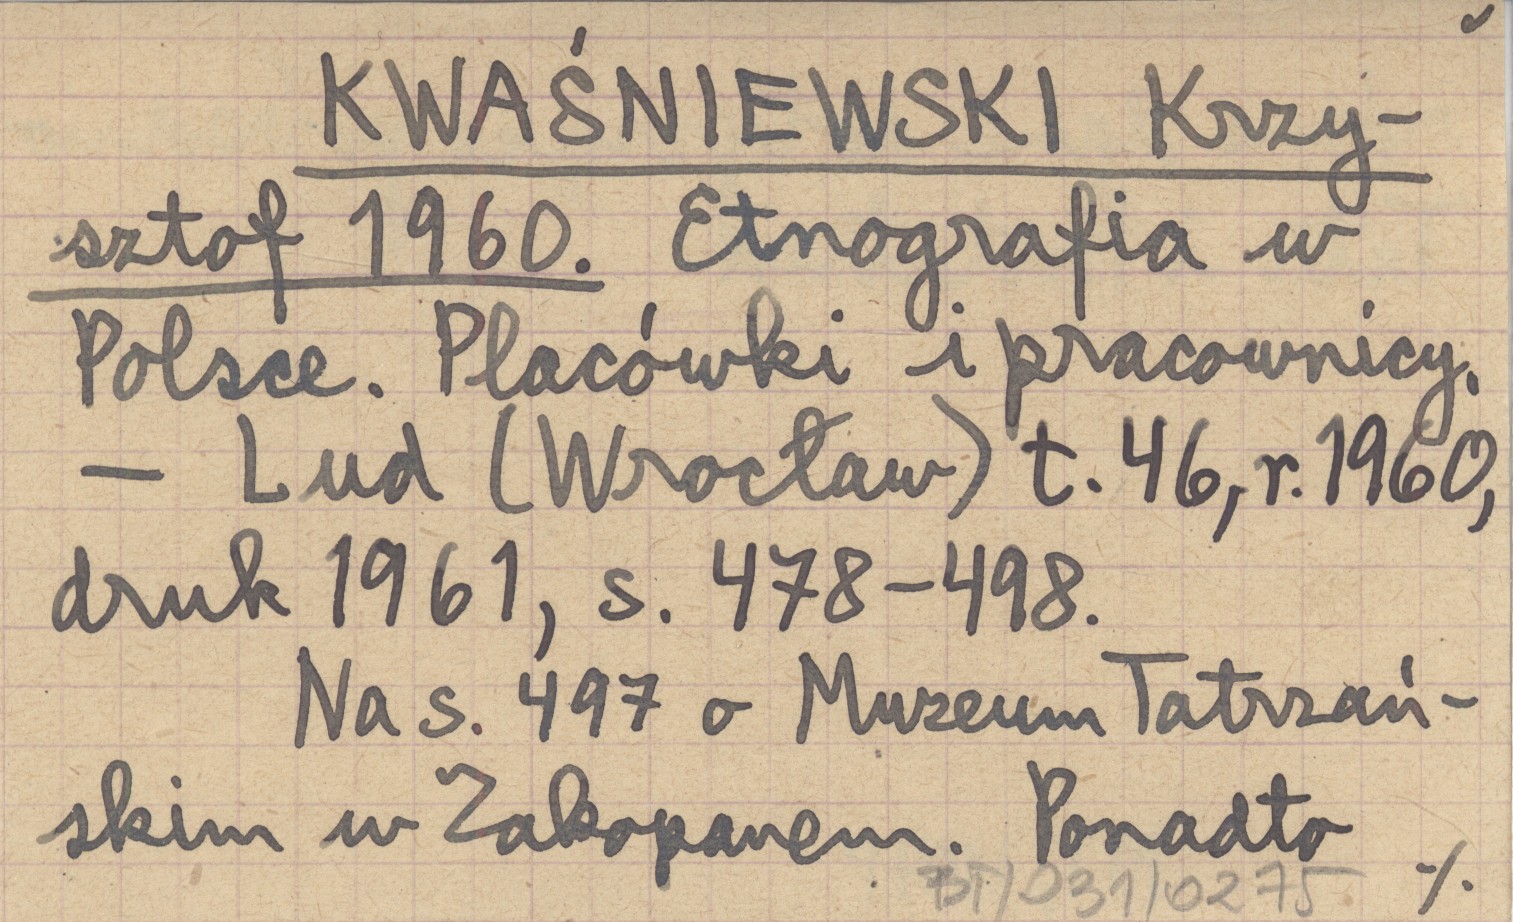 KWAŚNIEWSKI Krzy-
sztof 1960. Etnografia w
Polsce. Placówki i pracownicy.
— Lud (Wrocław) t. 46, r. 1960,
druk 1961, s. 478-498.
Na s. 497 o Muzeum Tatrzań-
skim w Zakopanem. Ponadto
BT/031/0275 ·/.